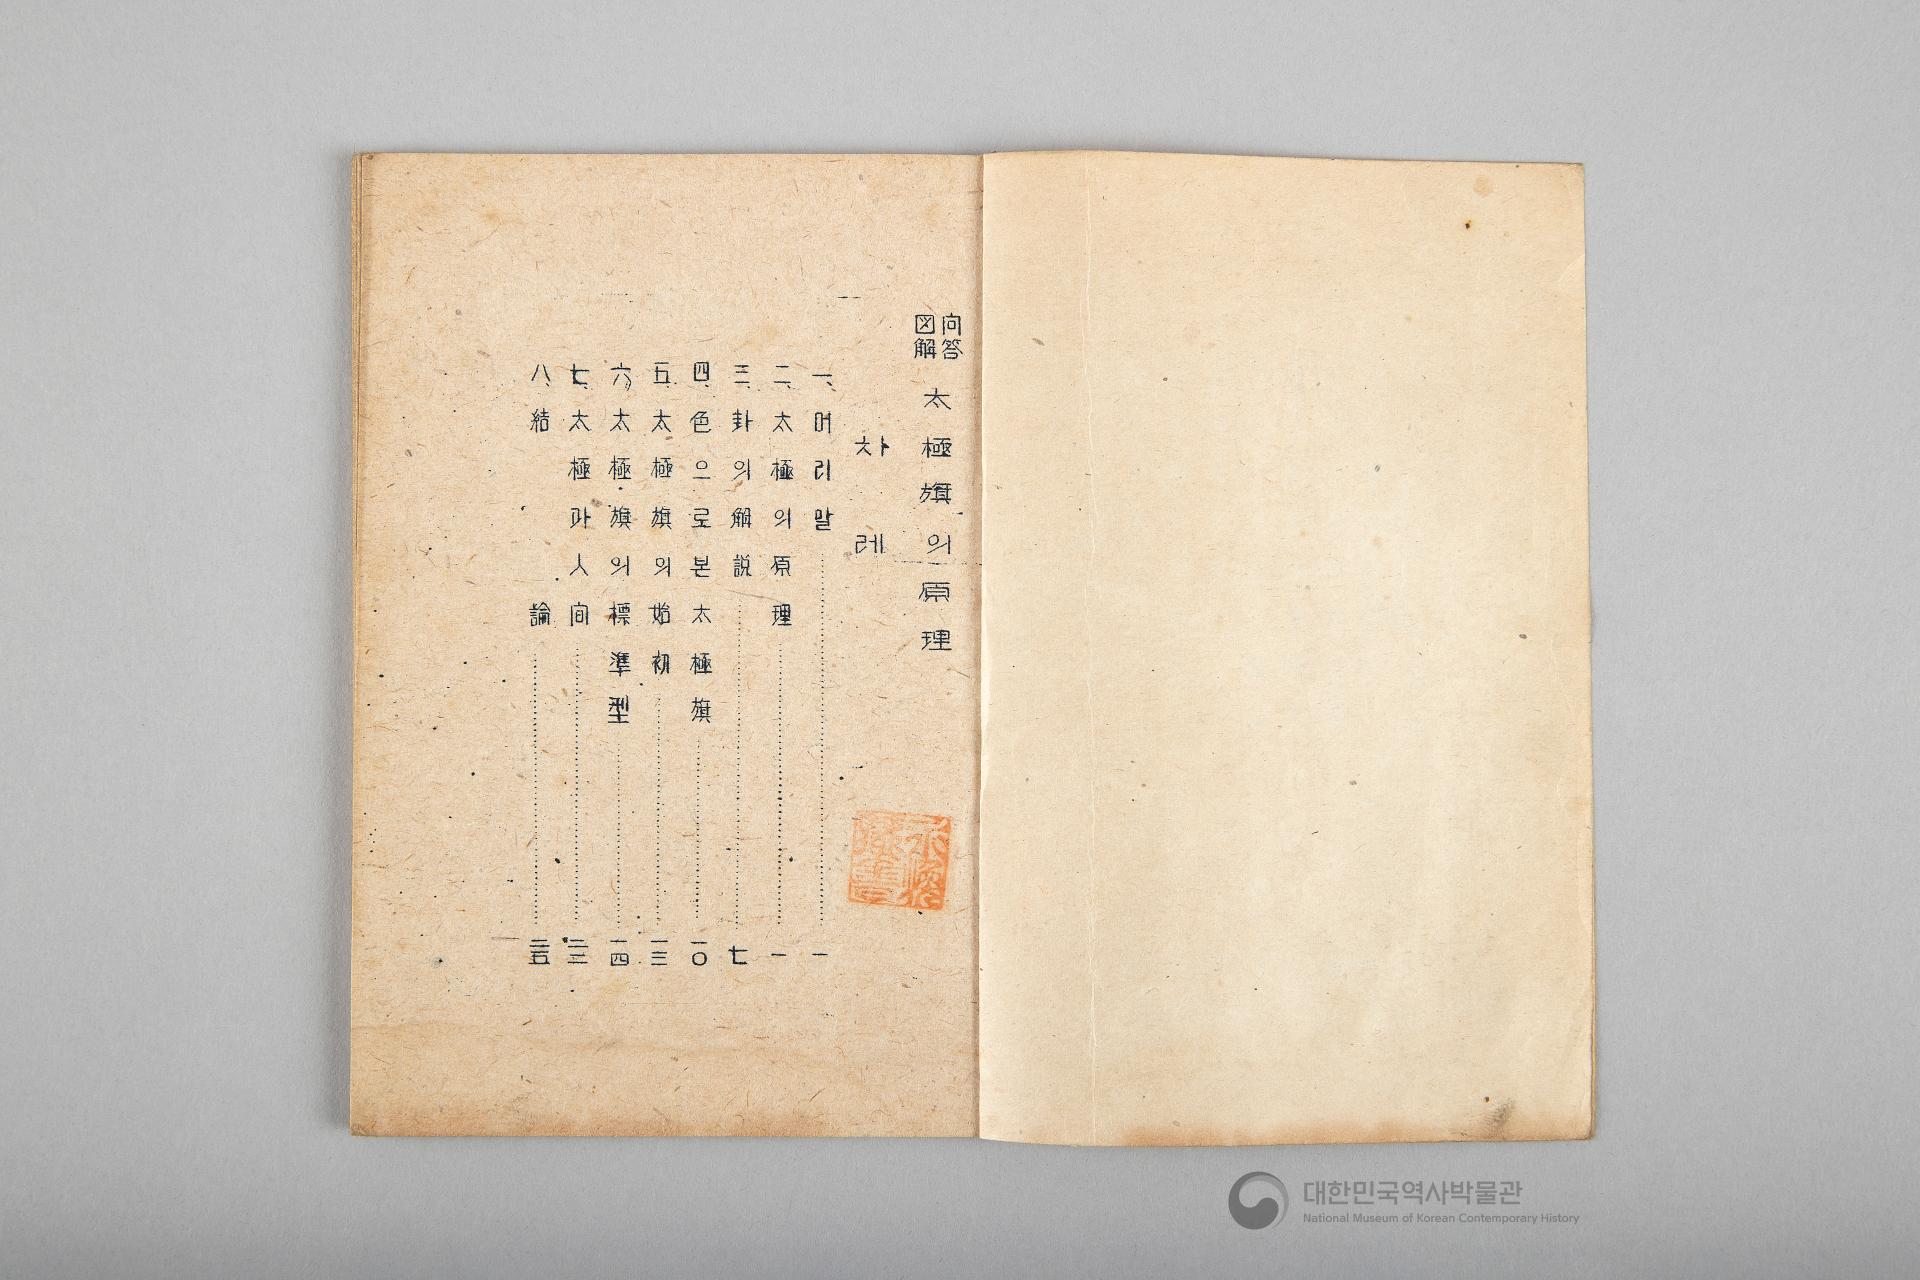 問答
図解
太極旗의原理
차레
一、머리말 一
二、太極의原理 一
三、卦의解説 七
四、色으로본太極旗 一〇
五、太極旗의始初 一三
六、太極旗의標準型 一四
七、太極과人間 二三
八、結論 二五
대한민국역사박물관
National Museum of Korean Contemporary History